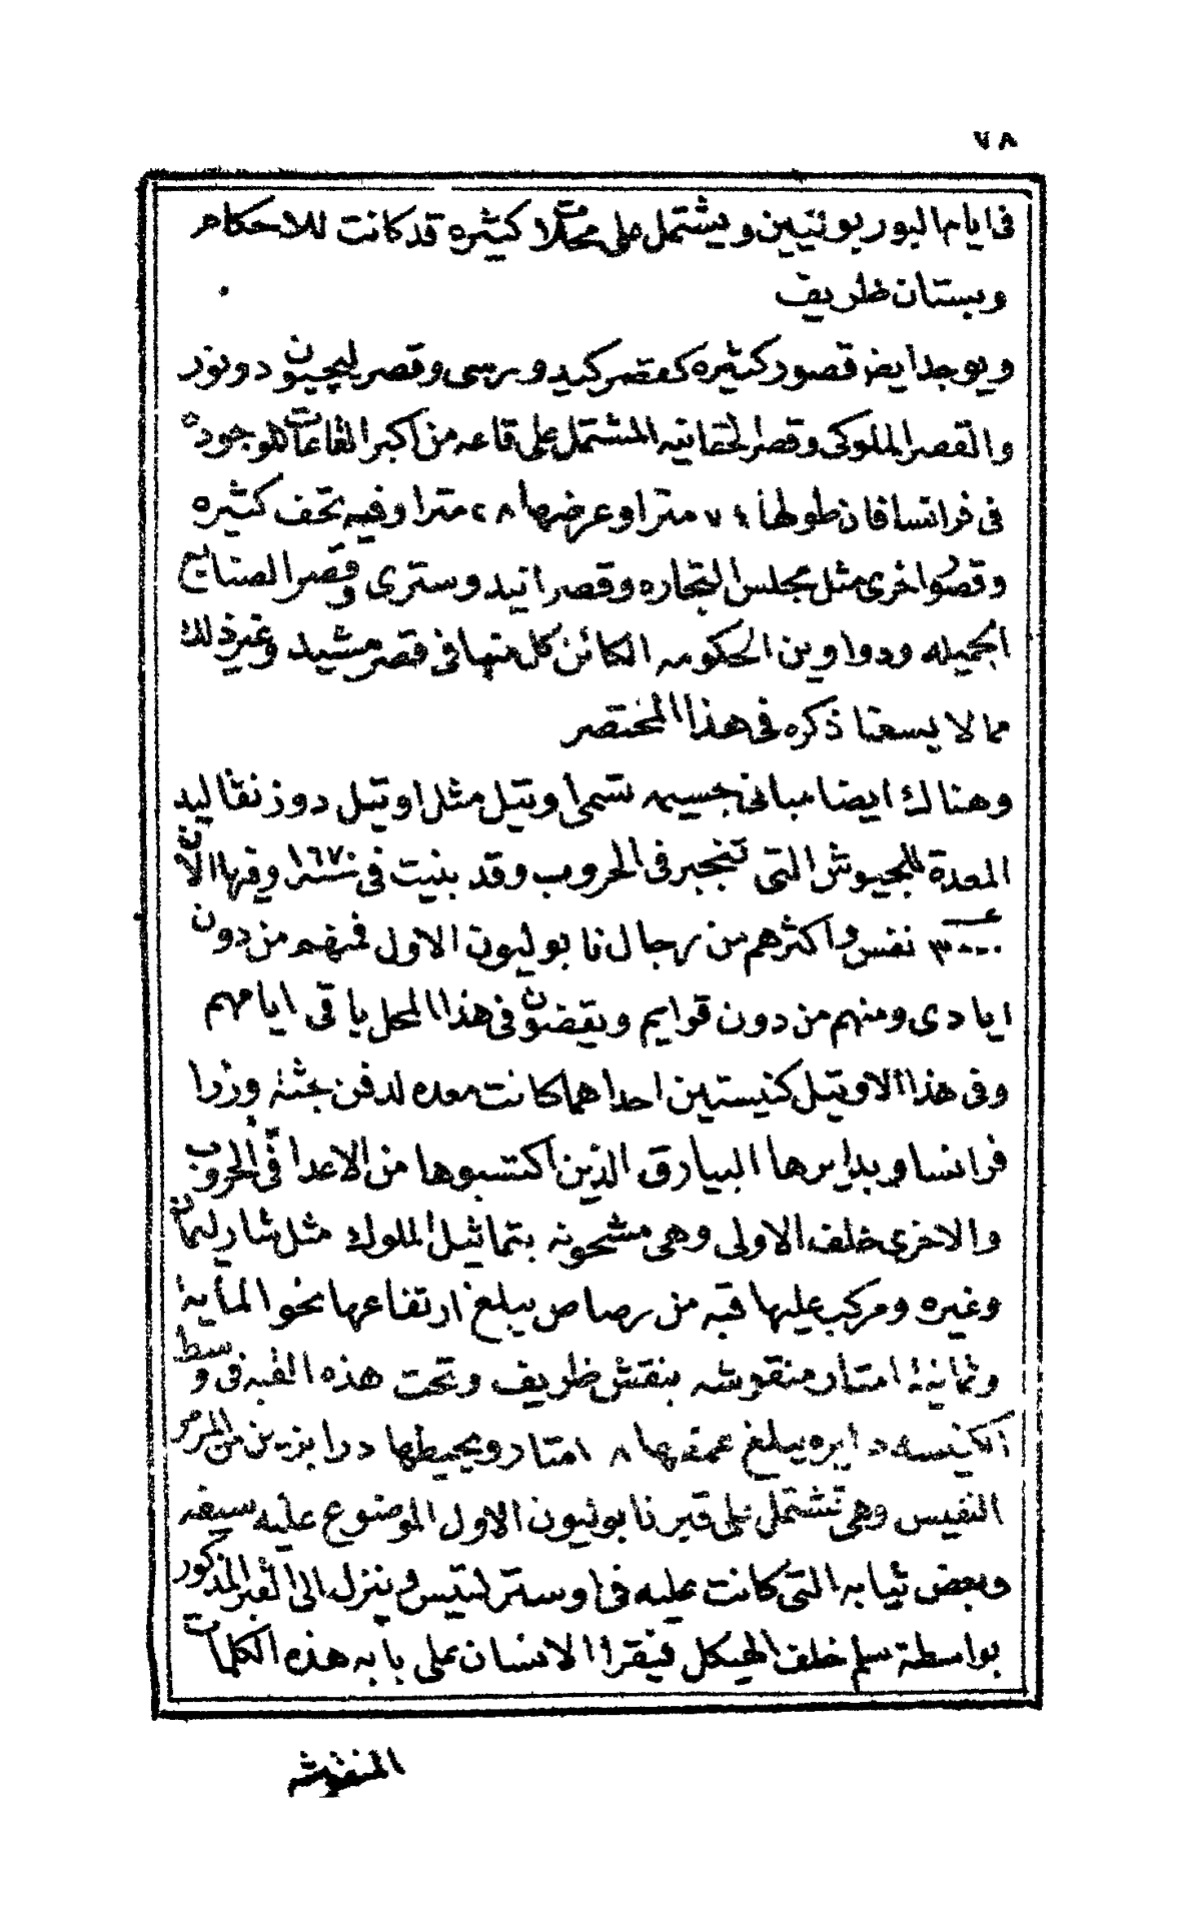 ٧٨
فى ايام البوربونيين ويشتمل على محلات كثيره قد كانت للاحكام
وبستان ظريف
ويوجد ايض قصور كثيره كقصر كيد ورسى وقصر ليجيون دونور
والقصر الملوكى وقصر الحقانيه المشتمل على قاعه من اكبر القاعات الموجوده
فى فرانسا فان طولها ٧٤ مترا وعرضها ٢٨ مترا وفيه تحف كثيره
وقصور اخرى مثل مجلس التجاره وقصر انيد وسترى وقصر الصنايع
الجميله ودواوين الحكومه الكائن كل منها فى قصر مشيد وغير ذلك
مما لا يسعنا ذكره فى هذا المختصر
وهناك ايضا مبانى جسيمه تسمى اوتيل مثل اوتيل دوزنفاليد
المعدة للجيوش التى تنجبر فى الحروب وقد بنيت فى سنة ١٦٧٠ وفيها الآن
٣٠٠٠ نفس واكثرهم من رجال نابوليون الاول فمنهم من دون
ايادى ومنهم من دون قوايم ويقضون فى هذا المحل باقى ايامهم
وفى هذا الاوتيل كنيستين احداهما كانت معده لدفن جثة وزرا
فرانسا وبدايرها البيارق الذين اكتسبوها من الاعدا فى الحروب
والاخرى خلف الاولى وهى مشحونه بتماثيل الملوك مثل شارلمان
وغيره ومركب عليها قبه من رصاص يبلغ ارتفاعها نحو المأية
وثمانية امتار منقوشه بنقش ظريف وتحت هذه القبه فى وسط
الكنيسه دايره يبلغ عمقها ٨ امتار ويحيطها درابزين من المرمر
النفيس وهى تشتمل على قبر نابوليون الاول الموضوع عليه سيفه
وبعض ثيابه التى كانت عليه فى اوسترليتس وينزل الى القبر المذكور
بواسطة سلم خلف الهيكل فيقرا الانسان على بابه هذه الكلمات
المنقوشه